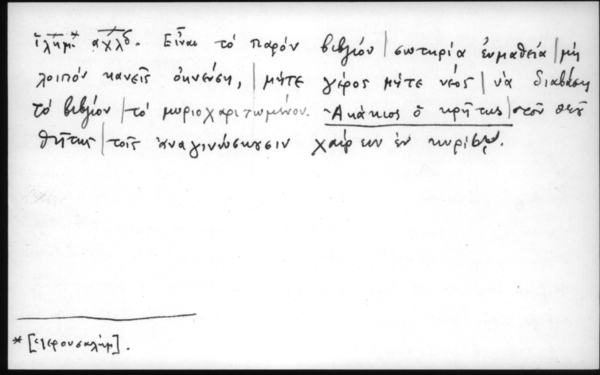 ἰλημ* αχλδ. Εἶναι τό παρόν βιβλίον | σωτηρία ἐνμαθεία | μή
λοιπόν κανείς ὀκνεύση, | μήτε γέρος μήτε νέος | νὰ διαβάση
τό βιβλίον | τό μυριοχαριτωμένον. Ἀκάκιος ὁ κρήτης | στόν
θύτης | τοῖς ἀναγινώσκουσιν χαίρειν ἐν κυρίῳ.
* [Ἱερουσαλήμ].